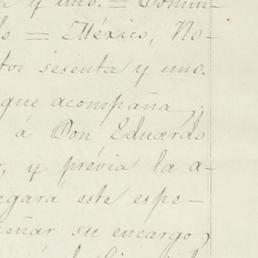 a y uno. = Domin-
lo = México, No-
tos sesenta y uno.
que acompaña,
á Don Eduardo
r, y prévia la a-
egará este espe-
eñar su encargo,